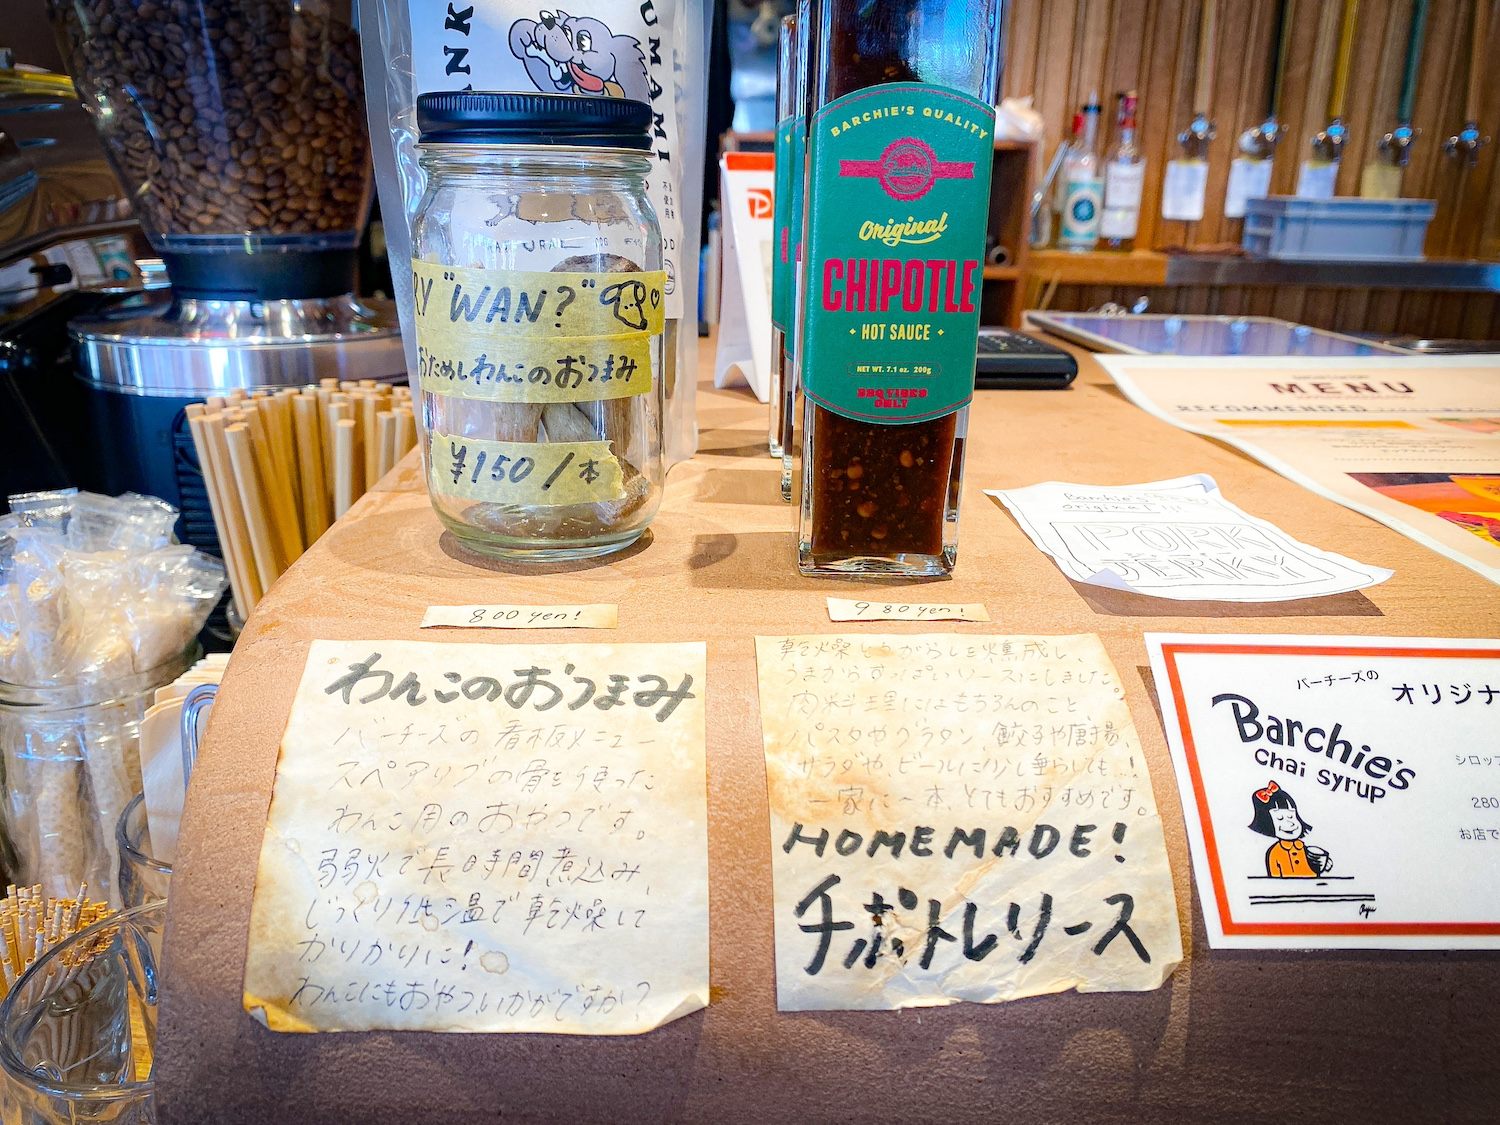 UMAMI
RY "WAN?"
おためしわんこのおつまみ
¥150/本
BARCHIE'S QUALITY
Original
CHIPOTLE
HOT SAUCE
NET WT. 7.1 oz. 200g
MENU
RECOMMENDED
Barchie's
original
PORK
JERKY
800 yen!
980yen!
わんこのおつまみ
バーチーズの看板メニュー
スペアリブの骨を使った
わんこ用のおやつです。
弱火で長時間煮込み、
じっくり低温で乾燥して
カリカリに!
わんこにもおやついかがですか?
乾燥とうがらしを燻成し、
うまからすっぱいソースにしました。
肉料理にはもちろんのこと
パスタやグラタン、餃子や唐揚、
サラダや、ビールに少し垂らしても…!
一家に一本、とてもおすすめです。
HOMEMADE!
チポトレソース
バーチーズの
オリジナ
Barchie's
chai syrup
シロップ
280
お店で